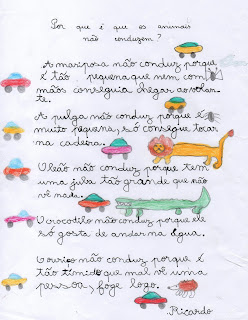 Por que é que os animais
não conduzem?
A mariposa não conduz porque
é tão pequena que nem com
mãos conseguia chegar ao volan-
te.
A pulga não conduz porque é
muito pequena, só consegue tocar
na cadeira.
O leão não conduz porque tem
uma juba tão grande que não
vê nada.
O crocodilo não conduz porque ele
só gosta de andar na água.
O ouriço não conduz porque é
tão tímido que mal vê uma
pessoa, foge logo.
Ricardo